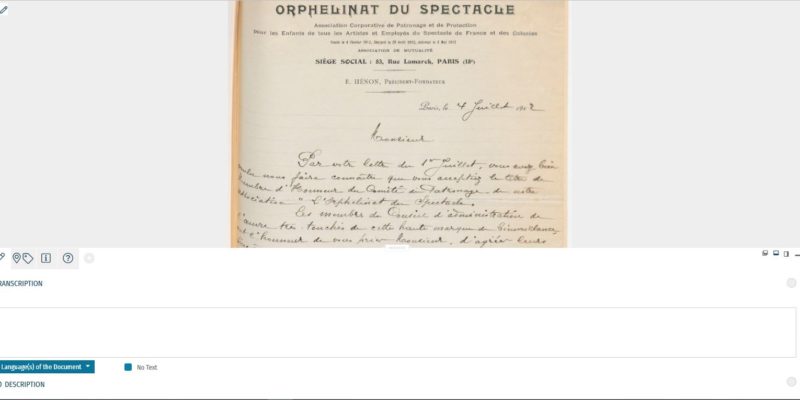 ORPHELINAT DU SPECTACLE
Association Corporative de Patronage et de Protection
Pour les Enfants de tous les Artistes et Employés du Spectacle de France et des Colonies
ASSOCIATION DE MUTUALITÉ
SIÈGE SOCIAL : 83, Rue Lamarck, PARIS (18e)
E. HÉNON, PRÉSIDENT-FONDATEUR
Paris, le 4 Juillet 1912
Monsieur
Par votre lettre du 1er Juillet, vous avez bien
voulu nous faire connaitre que vous acceptez le titre de
Membre d'Honneur du Comité de Patronage de notre
association "L'Orphelinat du Spectacle.
Les membres du Conseil d'administration de
l'œuvre très touchés de cette haute marque de bienveillance,
ont l'honneur de vous prier Monsieur, d'agréer leurs
TRANSCRIPTION
Language(s) of the Document
No Text
DESCRIPTION